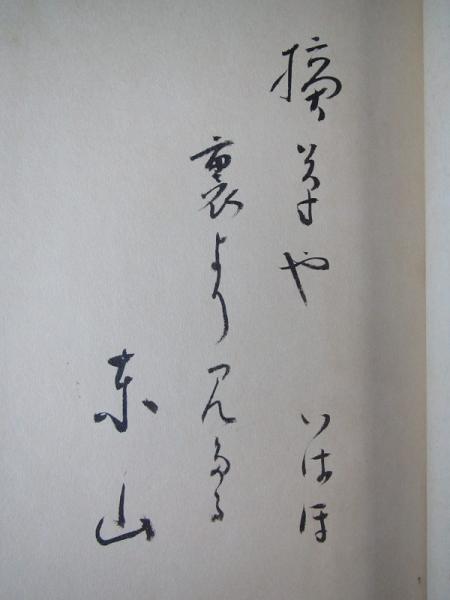 摘草や いはほ
裏より見たる
東山